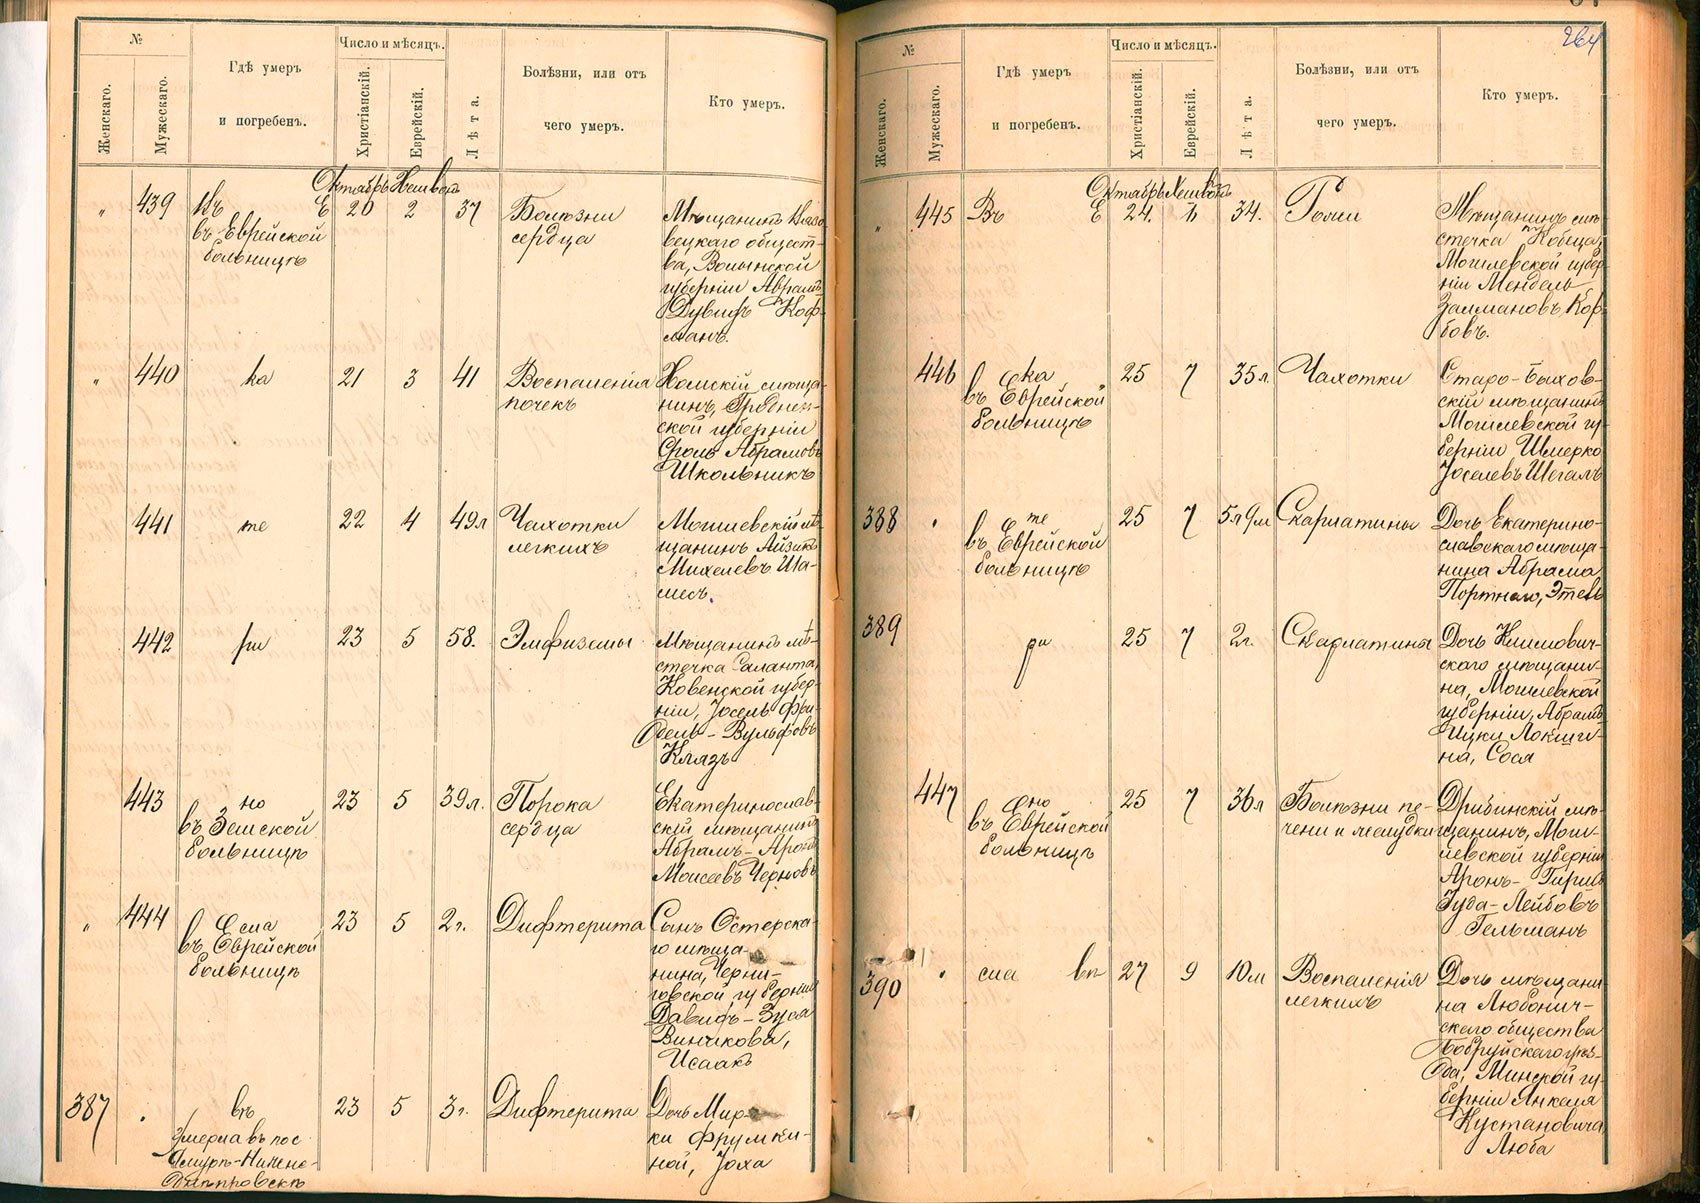 №
Женскаго.
Мужескаго.
Гдѣ умеръ
и погребенъ.
Число и мѣсяцъ.
Христіанскій.
Еврейскій.
Лѣта.
Болѣзни, или отъ
чего умеръ.
Кто умеръ.
Октябрь Хешвонъ
„ 439 Въ Е 20 2 37
въ Еврейской
больницѣ
Болѣзни
сердца
Мѣщанинъ
вецкаго общест-
ва, Волынской
губерніи Абрамъ
Дувидъ Коф-
манъ.
„ 440 ка 21 3 41
Воспаленія
почекъ
Хомскій мѣща-
нинъ, Гроднен-
ской губерніи
Сроль Абрамовъ
Школьникъ
441 те 22 4 49л
Чахотки
легкихъ
Могилевскій мѣ-
щанинъ Айзикъ
Михелевъ Ша-
месъ.
442 ри 23 5 58.
Эмфиземы
Мѣщанинъ мѣ-
стечка Саланта,
Ковенской губер-
ніи, Іосель Фри-
дель-Вульфовъ
Клязъ
443 но 23 5 39л.
въ Земской
больницѣ
Порока
сердца
Екатеринослав-
скій мѣщанинъ
Абрамъ-Аронъ
Моисеевъ Черновъ
„ 444 Е сла 23 5 2г.
въ Еврейской
больницѣ
Дифтерита
Сынъ Остерска-
го мѣща-
нина, Черни-
говской губерніи
Давидъ-Зуся
Винникова,
Исаакъ
387 „ въ 23 5 3г.
Умерла въ пос
Амуръ-Нижне-
Днѣпровскѣ
Дифтерита
Дочь Мир-
ки Фрумки-
ной, Іоха
264
№
Женскаго.
Мужескаго.
Гдѣ умеръ
и погребенъ.
Число и мѣсяцъ.
Христіанскій.
Еврейскій.
Лѣта.
Болѣзни, или отъ
чего умеръ.
Кто умеръ.
Октябрь Хешвонъ
„ 445 Въ Е 24. 34.
Мѣщанинъ мѣ-
стечка
Могилевской губер-
ніи Мендель
Залмановъ Кор-
бовъ.
446 Е ка 25 7 35л.
въ Еврейской
больницѣ
Чахотки
Старо-Быхов-
скій мѣщанинъ
Могилевской гу-
берніи Шмерко
Іоселевъ Шегалъ
388 „ Е те 25 7 5л 9м
въ Еврейской
больницѣ
Скарлатины
Дочь Екатерино-
славскаго мѣща-
нина Абрама
Портного, Этель
389 ри 25 7 2г.
Скарлатины
Дочь Климович-
скаго мѣщани-
на, Могилевской
губерніи, Абрамъ-
Ицки Локши-
на, Сося
447 Е но 25 7 36л
въ Еврейской
больницѣ
Болѣзни пе-
чени и желудка
Дрибинскій мѣ-
щанинъ, Моги-
левской губерніи
Аронъ-Гиршъ
Іуда-Лейбовъ
Гельманъ
390 „ сла въ 27 9 10м
Воспаленія
легкихъ
Дочь мѣщани
на Любонич-
скаго общества
Бобруйскаго уѣз-
да, Минской гу-
берніи Янкеля
Кустановича,
Люба